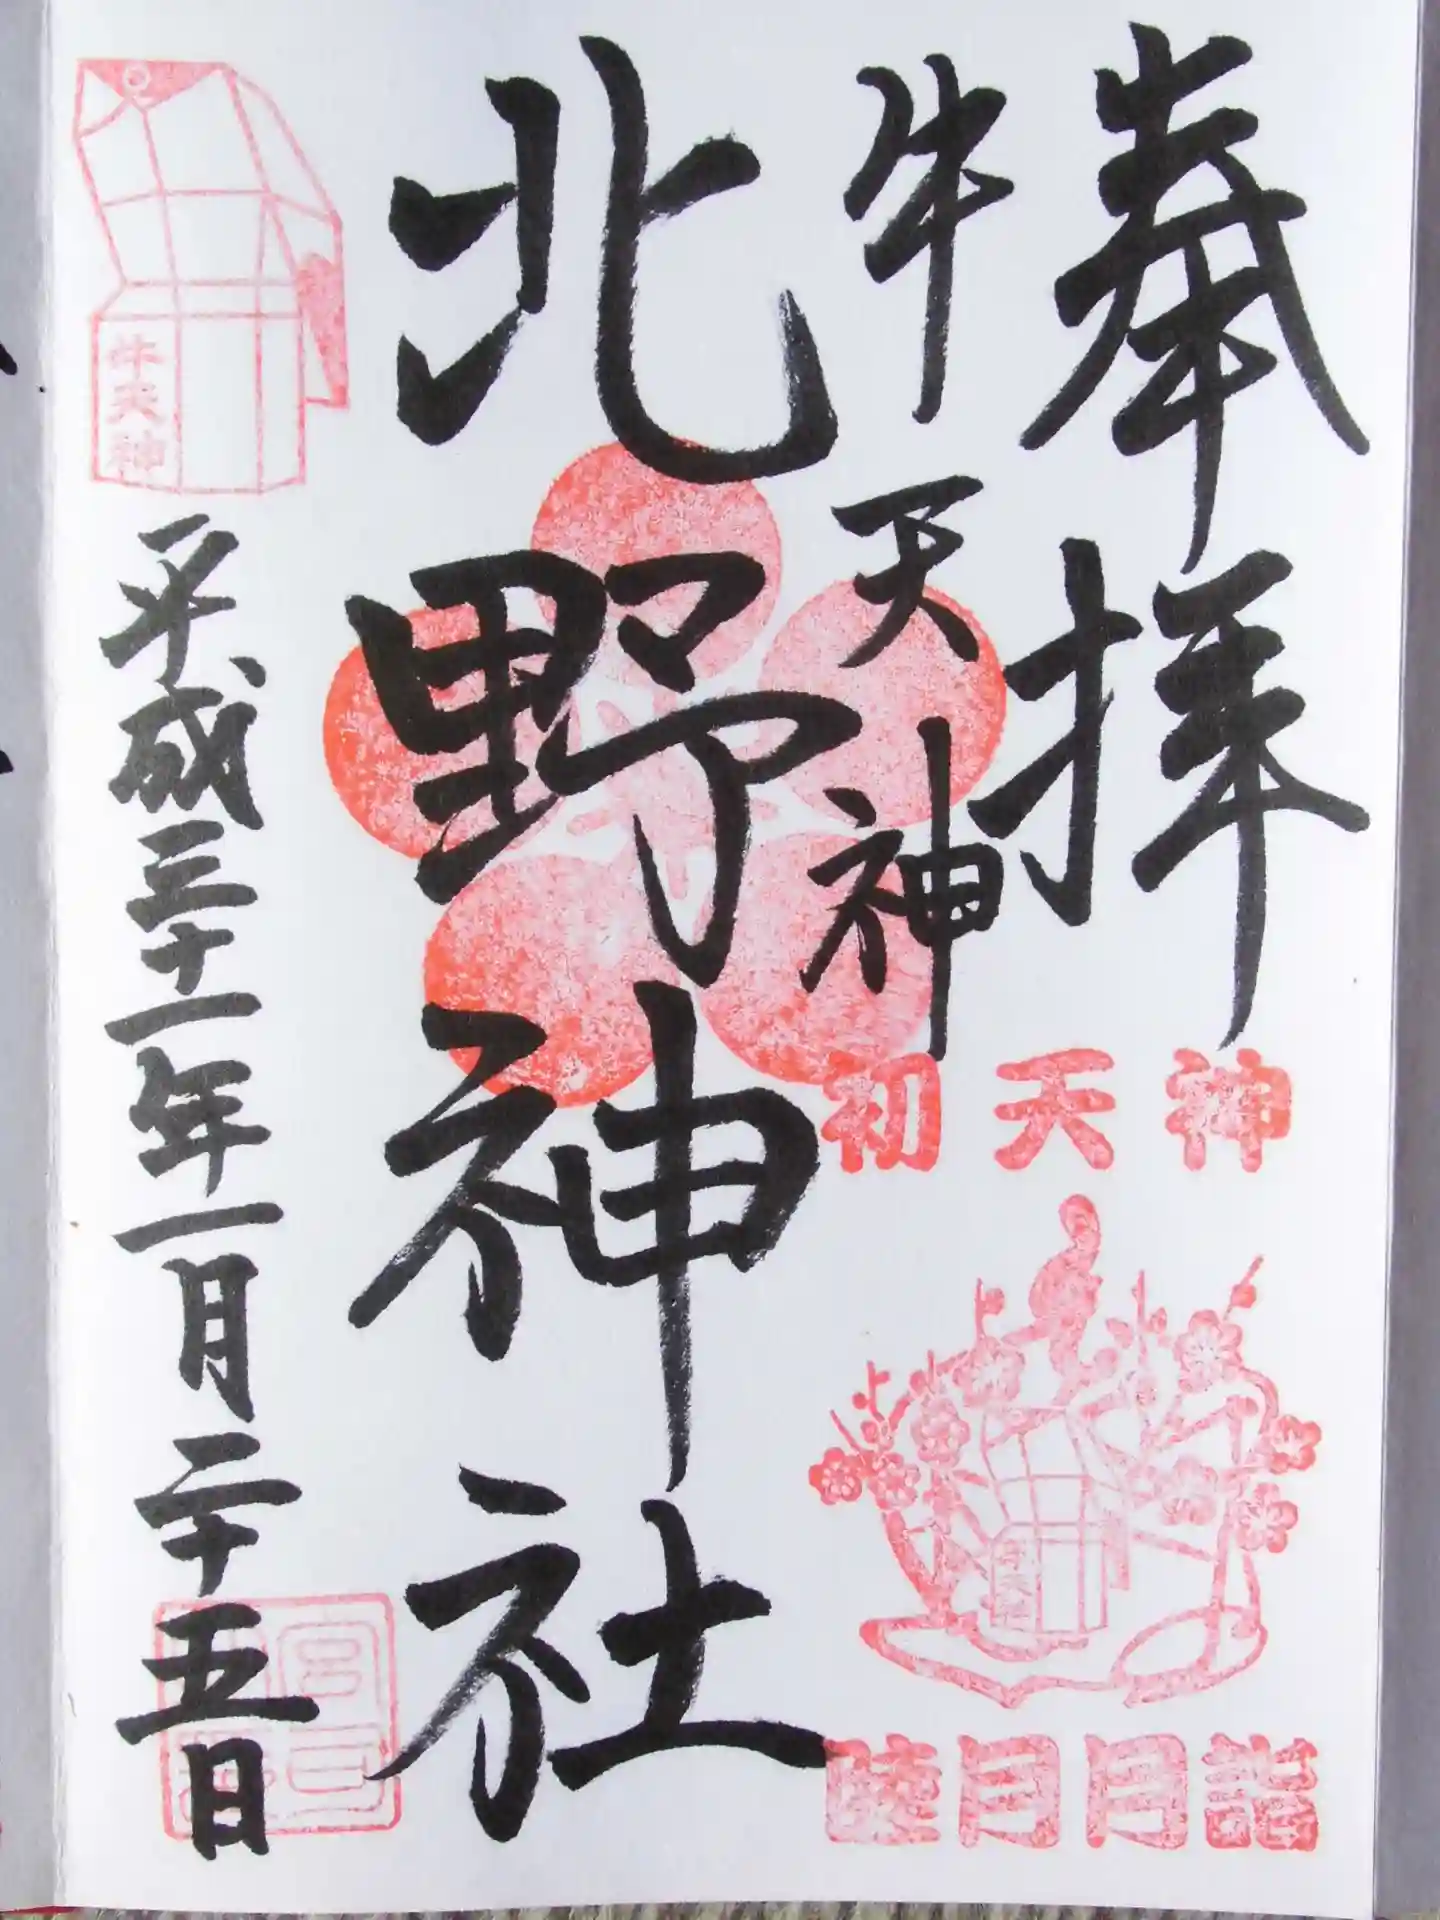 奉拝
牛天神
北野神社
平成三十一年一月二十五日
牛天神
初天神
牛天神
睦月月詣